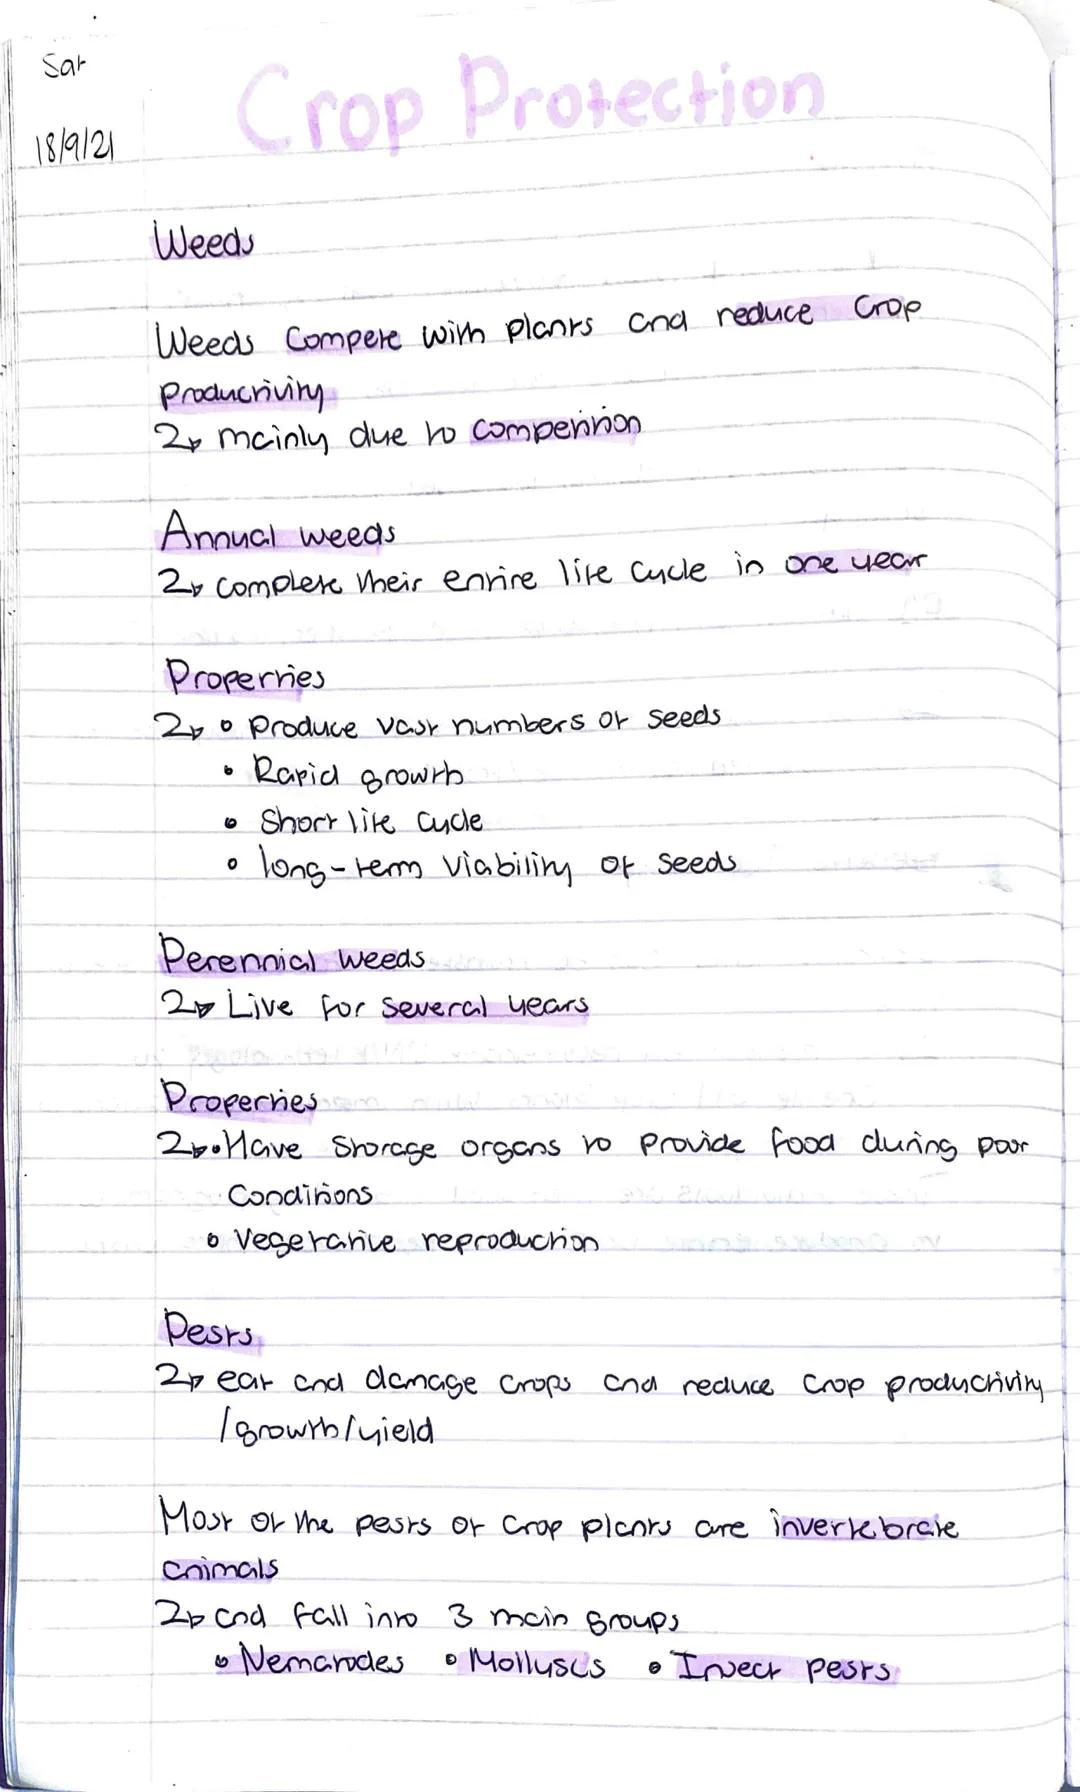 Sat
Crop Protection
18/9/21
Weeds
Weeds compete with plants and reduce crop
productivity
↳ mainly due to competition
Annual weeds
↳ complete their entire life cycle in one year
Properties
↳ • Produce vast numbers of seeds
• Rapid growth
• Short life cycle
• long-term viability of seeds
Perennial weeds
↳ Live for several years
Properties
↳ • Have storage organs to provide food during poor
conditions
• Vegetative reproduction
Pests
↳ eat and damage crops and reduce crop productivity
/growth/yield
Most of the pests of crop plants are invertebrate
animals
↳ and fall into 3 main groups
• Nematodes • Molluscs • Insect pests